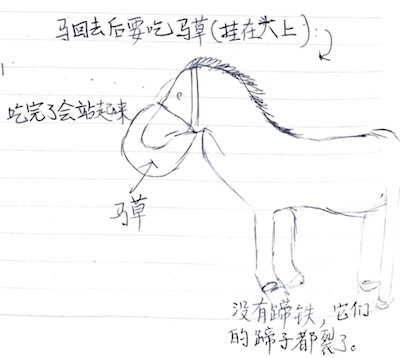 马回去后要吃马草(挂在头上)
吃完了会站起来
马草
没有蹄铁，它们
的蹄子都裂了。